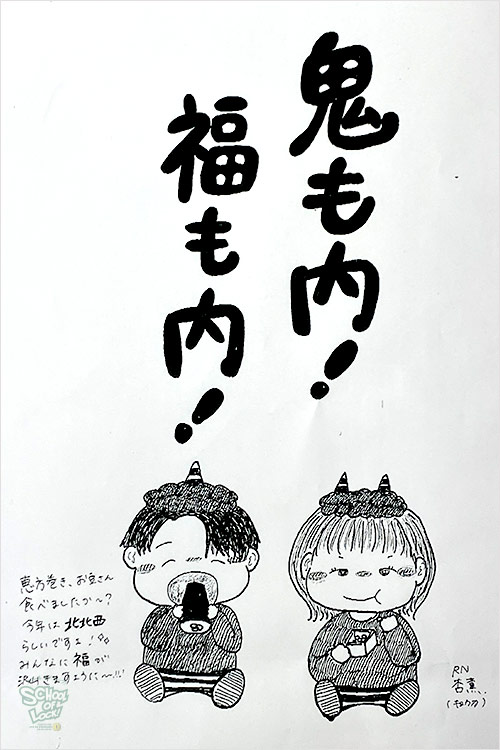 鬼も内!
福も内!
恵方巻き、お豆さん
食べましたか〜?
今年は 北北西
らしいですよ!
みんなに 福 が
沢山きますように〜!!!
RN
杏薫
SCHOOL
OF
LOCK!